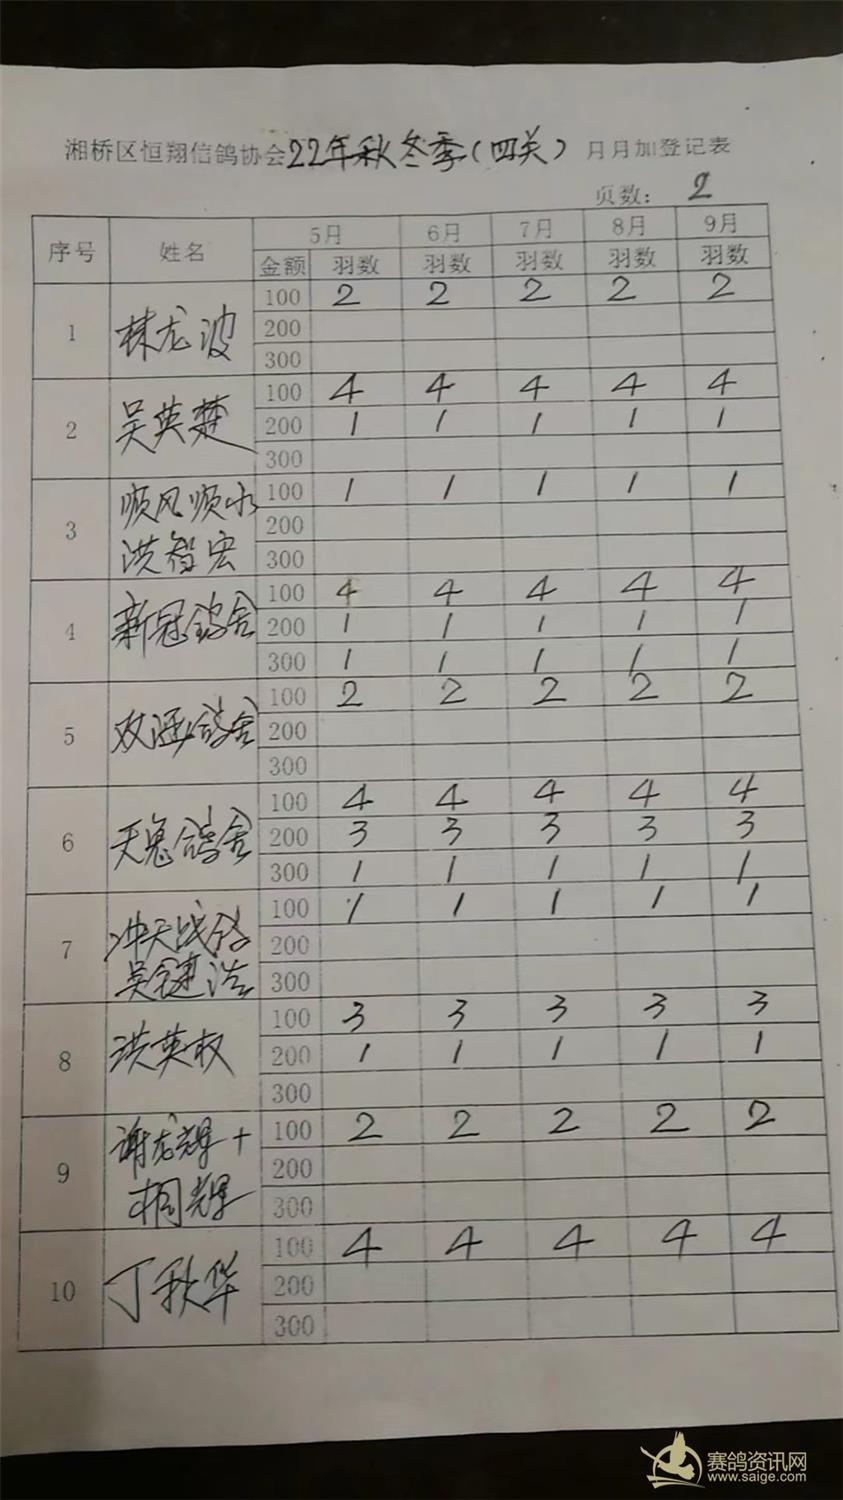 湘桥区恒翔信鸽协会22年秋冬季(四关) 月月加登记表
页数: 2
序号 姓名 5月 6月 7月 8月 9月
金额 羽数 羽数 羽数 羽数 羽数
1 林龙波 100 2 2 2 2 2
200
300
2 吴英楚 100 4 4 4 4 4
200 1 1 1 1 1
300
3 顺风顺水 100 1 1 1 1 1
洪智宏 200
300
4 新冠鸽舍 100 4 4 4 4 4
200 1 1 1 1 1
300 1 1 1 1 1
5 双涵鸽舍 100 2 2 2 2 2
200
300
6 天鬼鸽舍 100 4 4 4 4 4
200 3 3 3 3 3
300 1 1 1 1 1
7 冲天战鸽 100 1 1 1 1 1
吴键浩 200
300
8 洪英权 100 3 3 3 3 3
200 1 1 1 1 1
300
9 谢龙辉+ 100 2 2 2 2 2
桐辉 200
300
10 丁秋华 100 4 4 4 4 4
200
300
赛鸽资讯网
www.saige.com